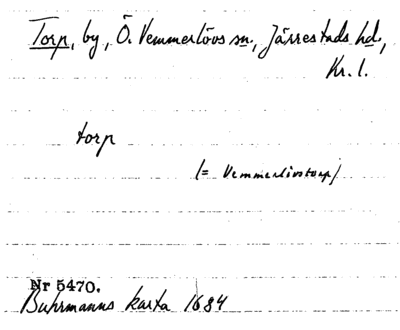 Torp, by, Ö. Vemmerlövs sn., Järrestads hd.,
Kr. l.
torp
(= Vemmerlövstorp)
Nr 5470.
Buhrmanns karta 1684